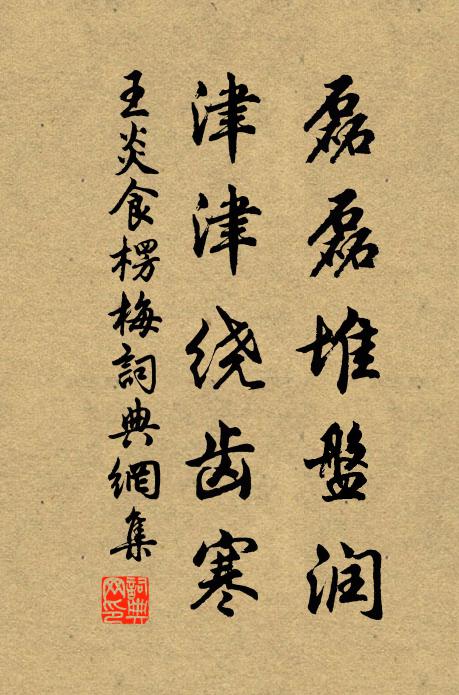 磊磊堆盤润
津津绕齿寒
王炎食楞梅詞典網集
詞典网印